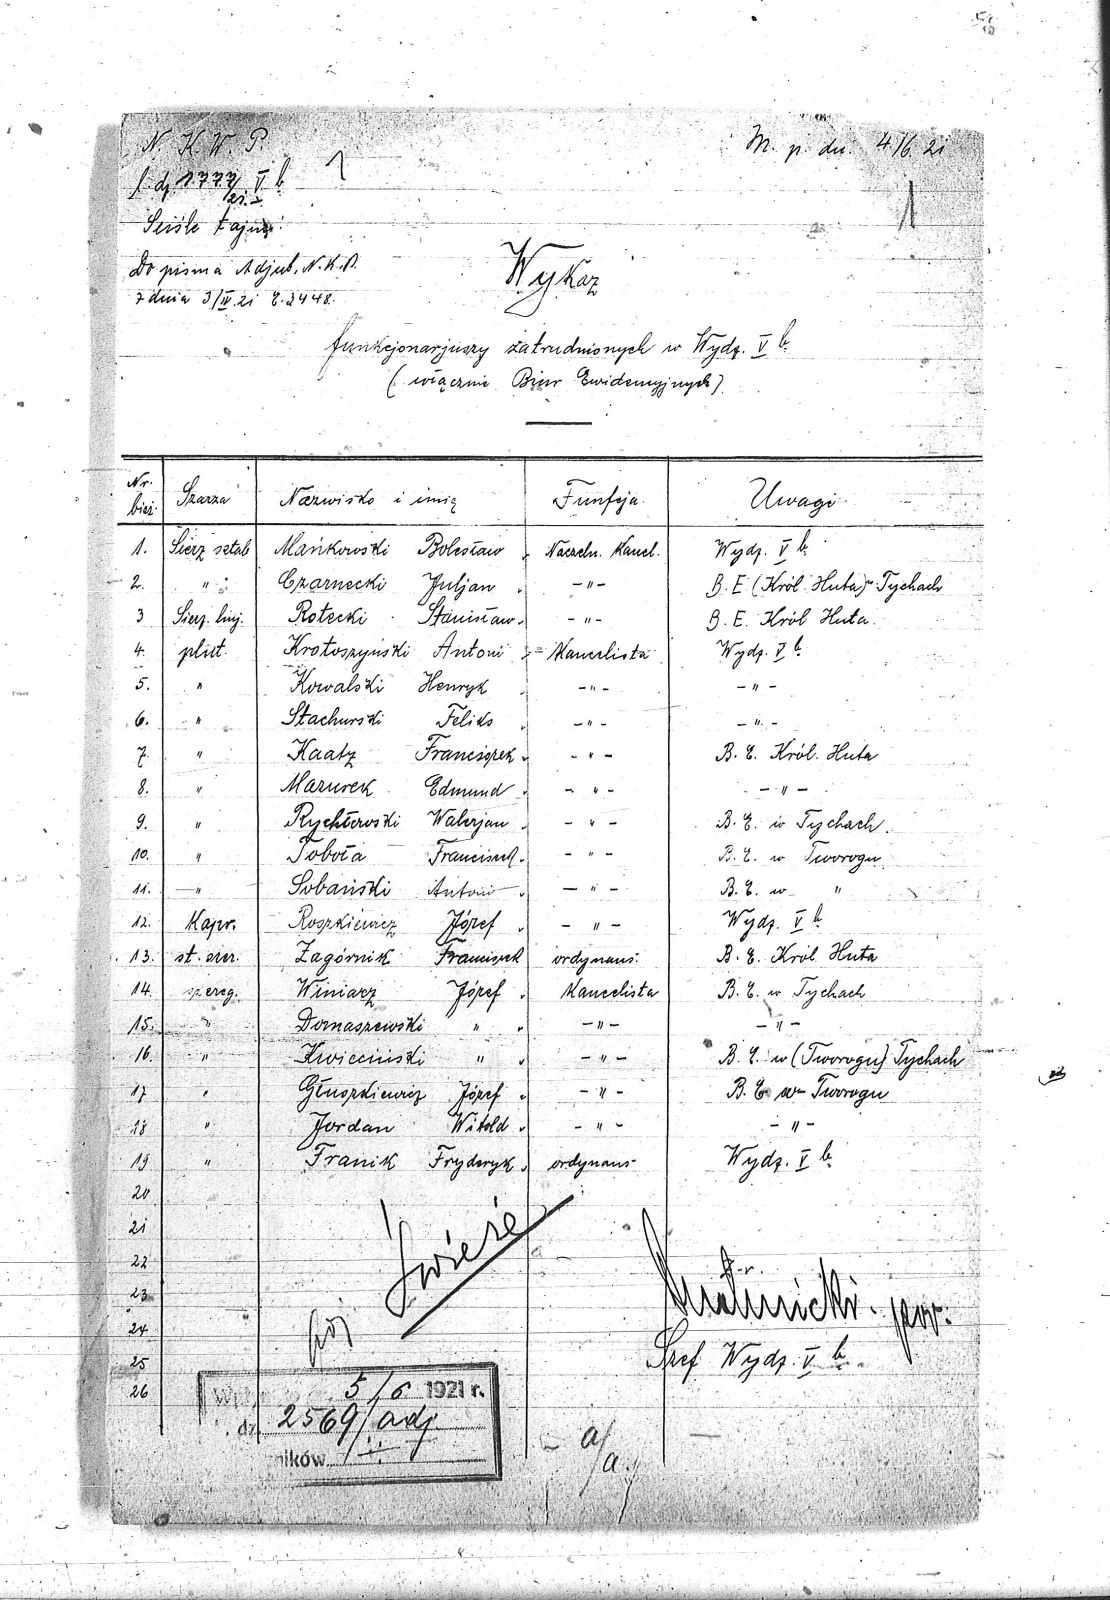 N. K. W. P.
M. p. dn. 4/6. 21
l. dz 1777/21 V b
1
1
Ściśle tajne.
Do pisma Adjut. N. K. P.
z dnia 3/IV. 21 L. 2448.
Wykaz
funkcjonarjuszy zatrudnionych w Wydz. V b.
(włącznie Biur Ewidencyjnych)
Nr. bież. Szarża Nazwisko i imię Funkcja Uwagi
1. Sierż sztab Mańkowski Bolesław Naczeln. Kancel. Wydz. V b.
2. " Czarnecki Juljan -"- B. E (Król. Huta) Tychach
3 Sierż. linj. Rotecki Stanisław -"- B. E. Król Huta.
4. plut. Krotoszyński Antoni Kancelista Wydz. V b.
5. " Kowalski Henryk -"- -"-
6. " Stachurski Feliks -"- -"-
7. " Kaatz Franciszek -"- B. E. Król. Huta
8. " Mazurek Edmund -"- -"-
9. " Rychterski Walerjan -"- B. E. w Tychach.
10. " Tobota Franciszek -"- B. E. w Tworogu
11. " Sobański Antoni -"- B. E. w "
12. Kapr. Roszkiewicz Józef -"- Wydz. V b.
13. st. szer. Zagórnik Franciszek ordynans. B. E. Król Huta
14. szereg. Winiarz Józef Kancelista B. E. w Tychach
15. " Domaszewski " -"- -"-
16. " Kwieciński " -"- B. E. w (Tworogu) Tychach
17 " Głuszkiewicz Józef -"- B. E w Tworogu
18 " Jordan Witold -"- -"-
19 " Franik Fryderyk ordynans Wydz. V b.
20
21
22
23
24
25
26
Szef Wydz. V b.
5/6 1921 r.
dz. 2569/adj.
ników
a/a.